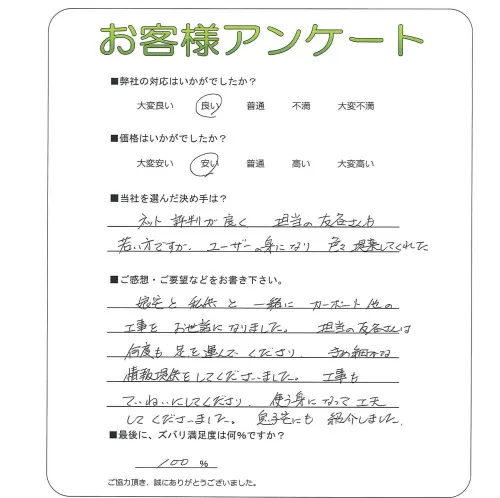 お客様アンケート
■弊社の対応はいかがでしたか？
大変良い 良い 普通 不満 大変不満
■価格はいかがでしたか？
大変安い 安い 普通 高い 大変高い
■当社を選んだ決め手は？
ネット評判が良く 担当の友呂さんも
若い方ですが、ユーザーの身になり 色々提案してくれた
■ご感想・ご要望などをお書き下さい。
と 私供と一緒に カーポート他の
工事を お世話になりました。 担当の友呂さんは
何度も足を運んで くださり、 きめ細かな
情報提供をしてくださいました。 工事も
ていねいにしてくださり、 使う身になって工夫
してくださいました。 息子宅にも 紹介しました。
■最後に、ズバリ満足度は何％ですか？
100 ％
ご協力頂き、誠にありがとうございました。